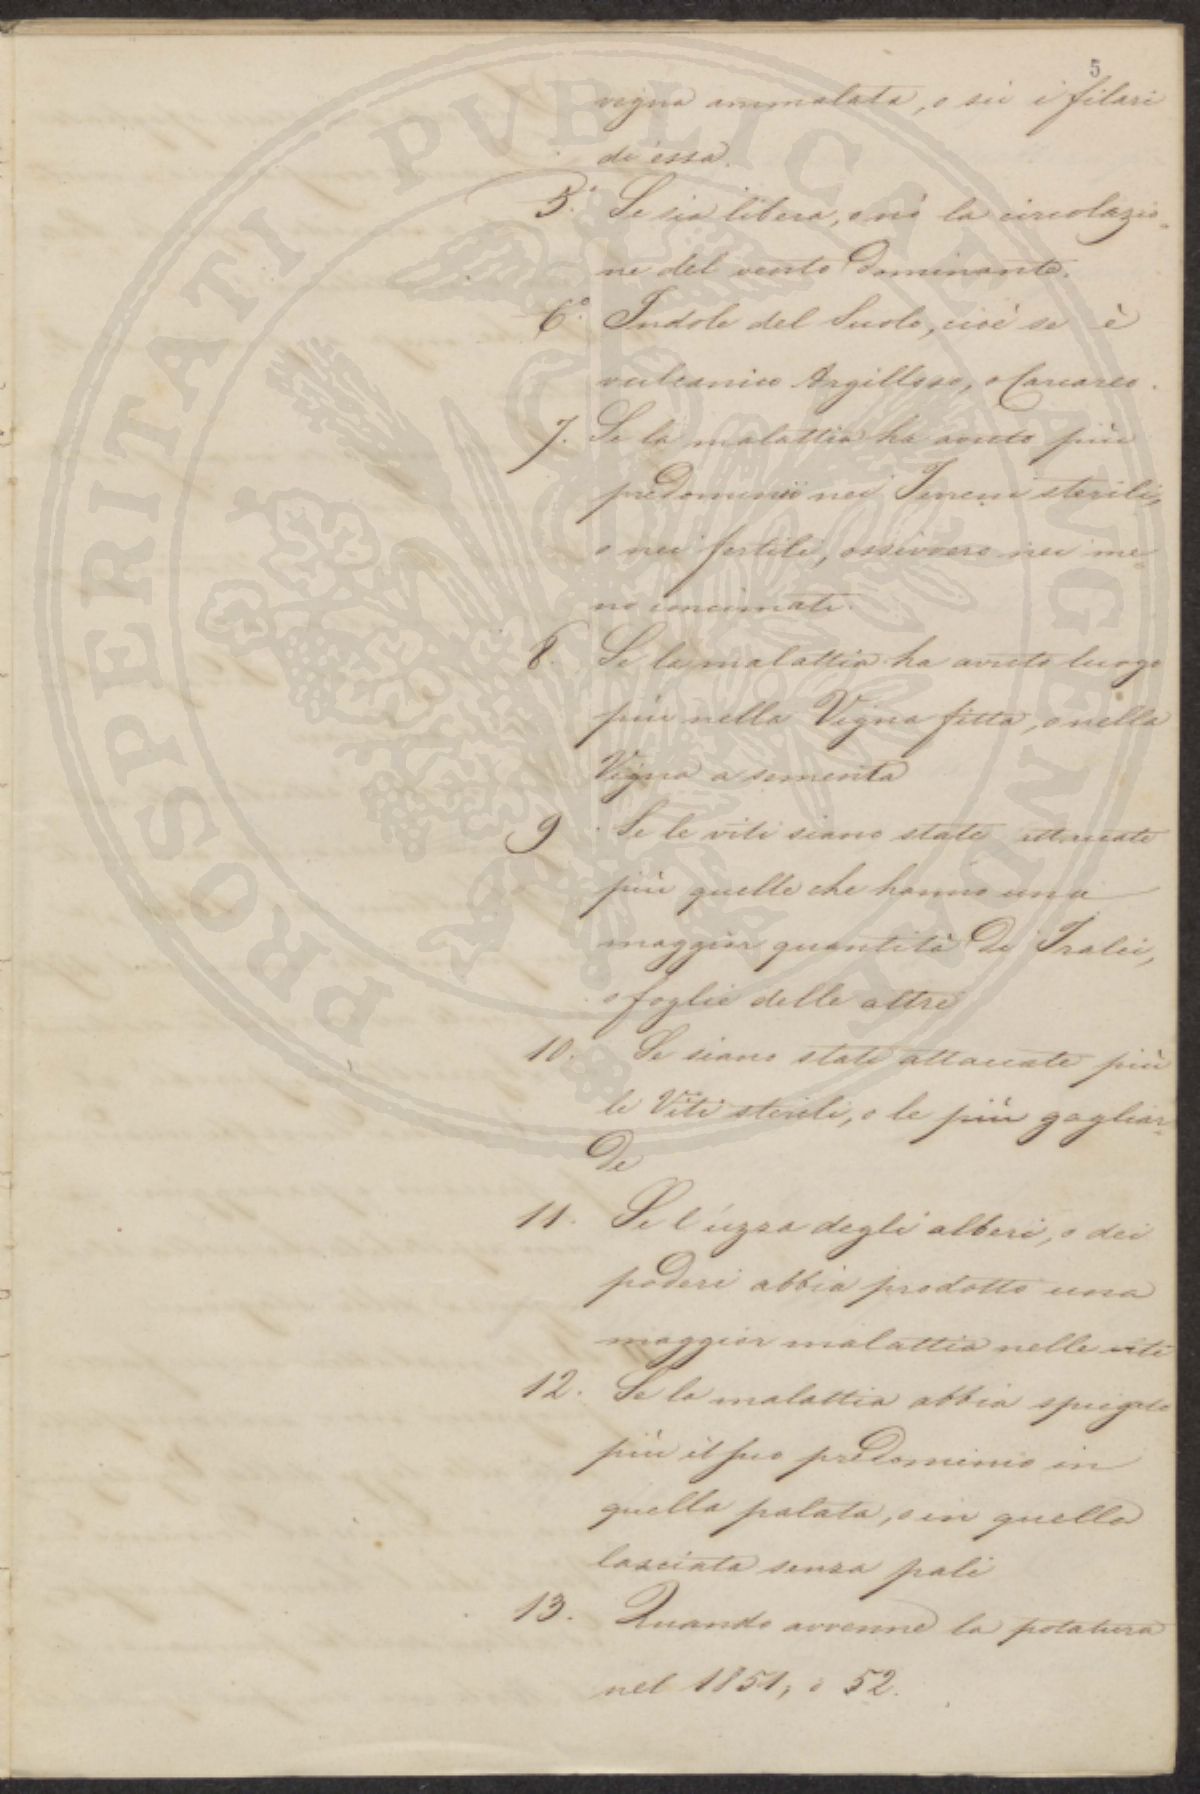 5
vigna ammalata, o su i filari
di essa.
5.° Se sia libera, o nò la circolazio=
ne del vento Dominante.
6.° Indole del Suolo, cioè se è
vulcanico Argilloso, o Carcareo.
7. Se la malattia ha avuto più
predominio nei Terreni sterili,
o nei fertili, ossivvero nei me
no concimati.
8. Se la malattia ha avuto luogo
più nella Vigna fitta, o nella
Vigna a sementa
9. Se le viti siano state attaccate
più quelle che hanno una
maggior quantità Di Tralci,
o foglie delle altre
10. Se siano state attaccate più
le Viti sterili, o le più gagliar=
De
11. Se l'uzza degli alberi, o dei
poderi abbia prodotto una
maggior malattia nelle viti
12. Se la malattia abbia spiegato
più il suo predominio in
quella palata, o in quella
lasciata senza pali
13. Quando avvenne la potatura
nel 1851, o 52.
PROSPERITATI PUBLICAE AUGENDAE